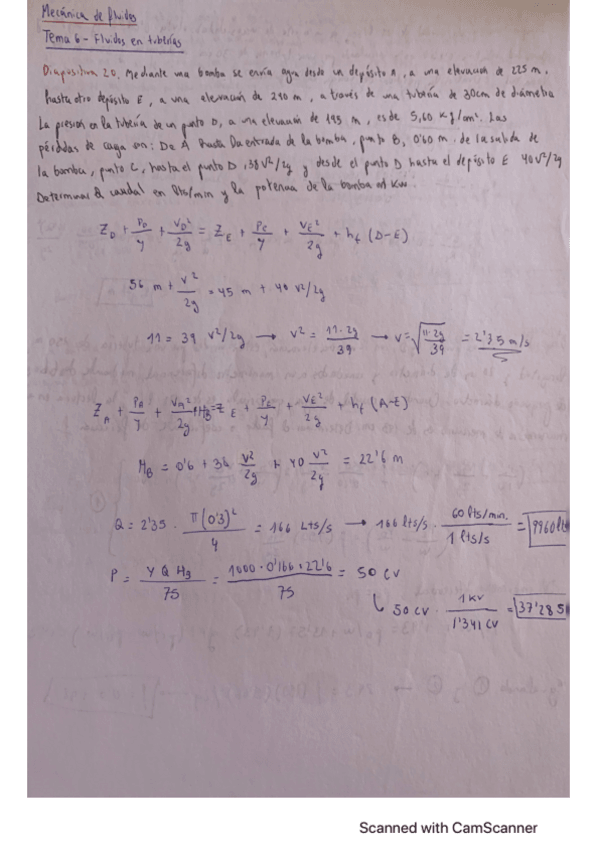 Mecánica de fluidos
Tema 6 - Fluidos en tuberías
Diapositiva 20. Mediante una bomba se envía agua desde un depósito A, a una elevación de 225 m.
hasta otro depósito E, a una elevación de 240 m, a través de una tubería de 30cm de diámetro
La presión en la tubería de un punto D, a una elevación de 195 m, es de 5,60 kg/cm². Las
pérdidas de carga son: De A hasta la entrada de la bomba, punto B, 0'60 m. de la salida de
la bomba, punto C, hasta el punto D 38 v²/2g y desde el punto D hasta el depósito E 40 v²/2g
Determinar el caudal en lts/min y la potencia de la bomba en Kw.
Z_D + P_D/γ + V_D²/2g = Z_E + P_E/γ + V_E²/2g + h_f (D-E)
56 m + v²/2g = 45 m + 40 v²/2g
11 = 39 v²/2g → v² = 11·2g/39 → v = √(11·2g/39) = 2'35 m/s
Z_A + P_A/γ + V_A²/2g + H_B = Z_E + P_E/γ + V_E²/2g + h_f (A-E)
H_B = 0'6 + 38 v²/2g + 40 v²/2g = 22'6 m
Q = 2'35 · π(0'3)²/4 = 166 Lts/s → 166 lts/s · 60 lts/min. / 1 lts/s = 9960 lt
P = γ Q H_B / 75 = 1000 · 0'166 · 22'6 / 75 = 50 CV
↳ 50 CV · 1 kv / 1'341 CV = 37'285
Scanned with CamScanner